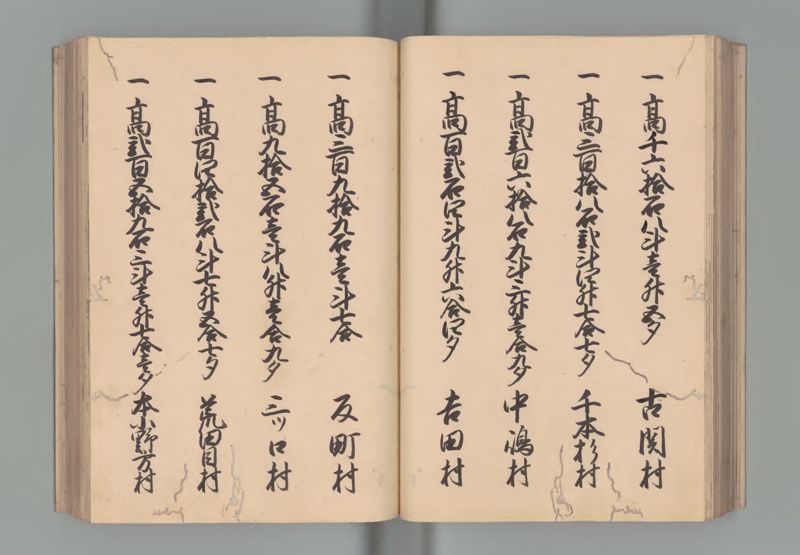 一高千六拾石八斗壱升五夕 古関村
一高三百拾八石弐斗四升七合七夕 千本杉村
一高弐百六拾八石九斗三升壱合九夕 中嶋村
一高百弐石四斗九升六合四夕 吉田村
一高三百九拾九石壱斗七合 反町村
一高九拾五石壱斗八升壱合九夕 三ツ口村
一高百四拾弐石八斗七升五合七夕 荒田目村
一高弐百五拾九石三斗壱升七合壱夕 本小野方村